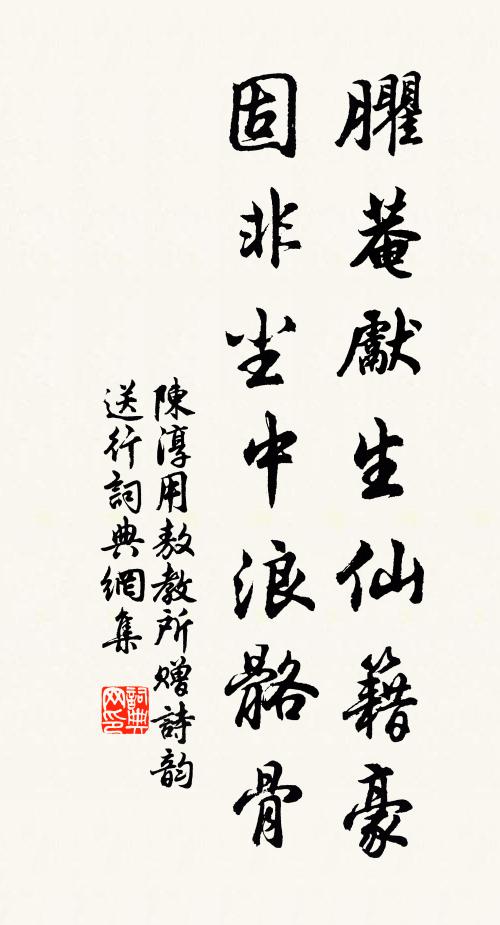 臞菴獻生仙籍豪
固非尘中浪骼骨
陳淳用敖教所贈詩韵
送行詞典網集
詞典网印